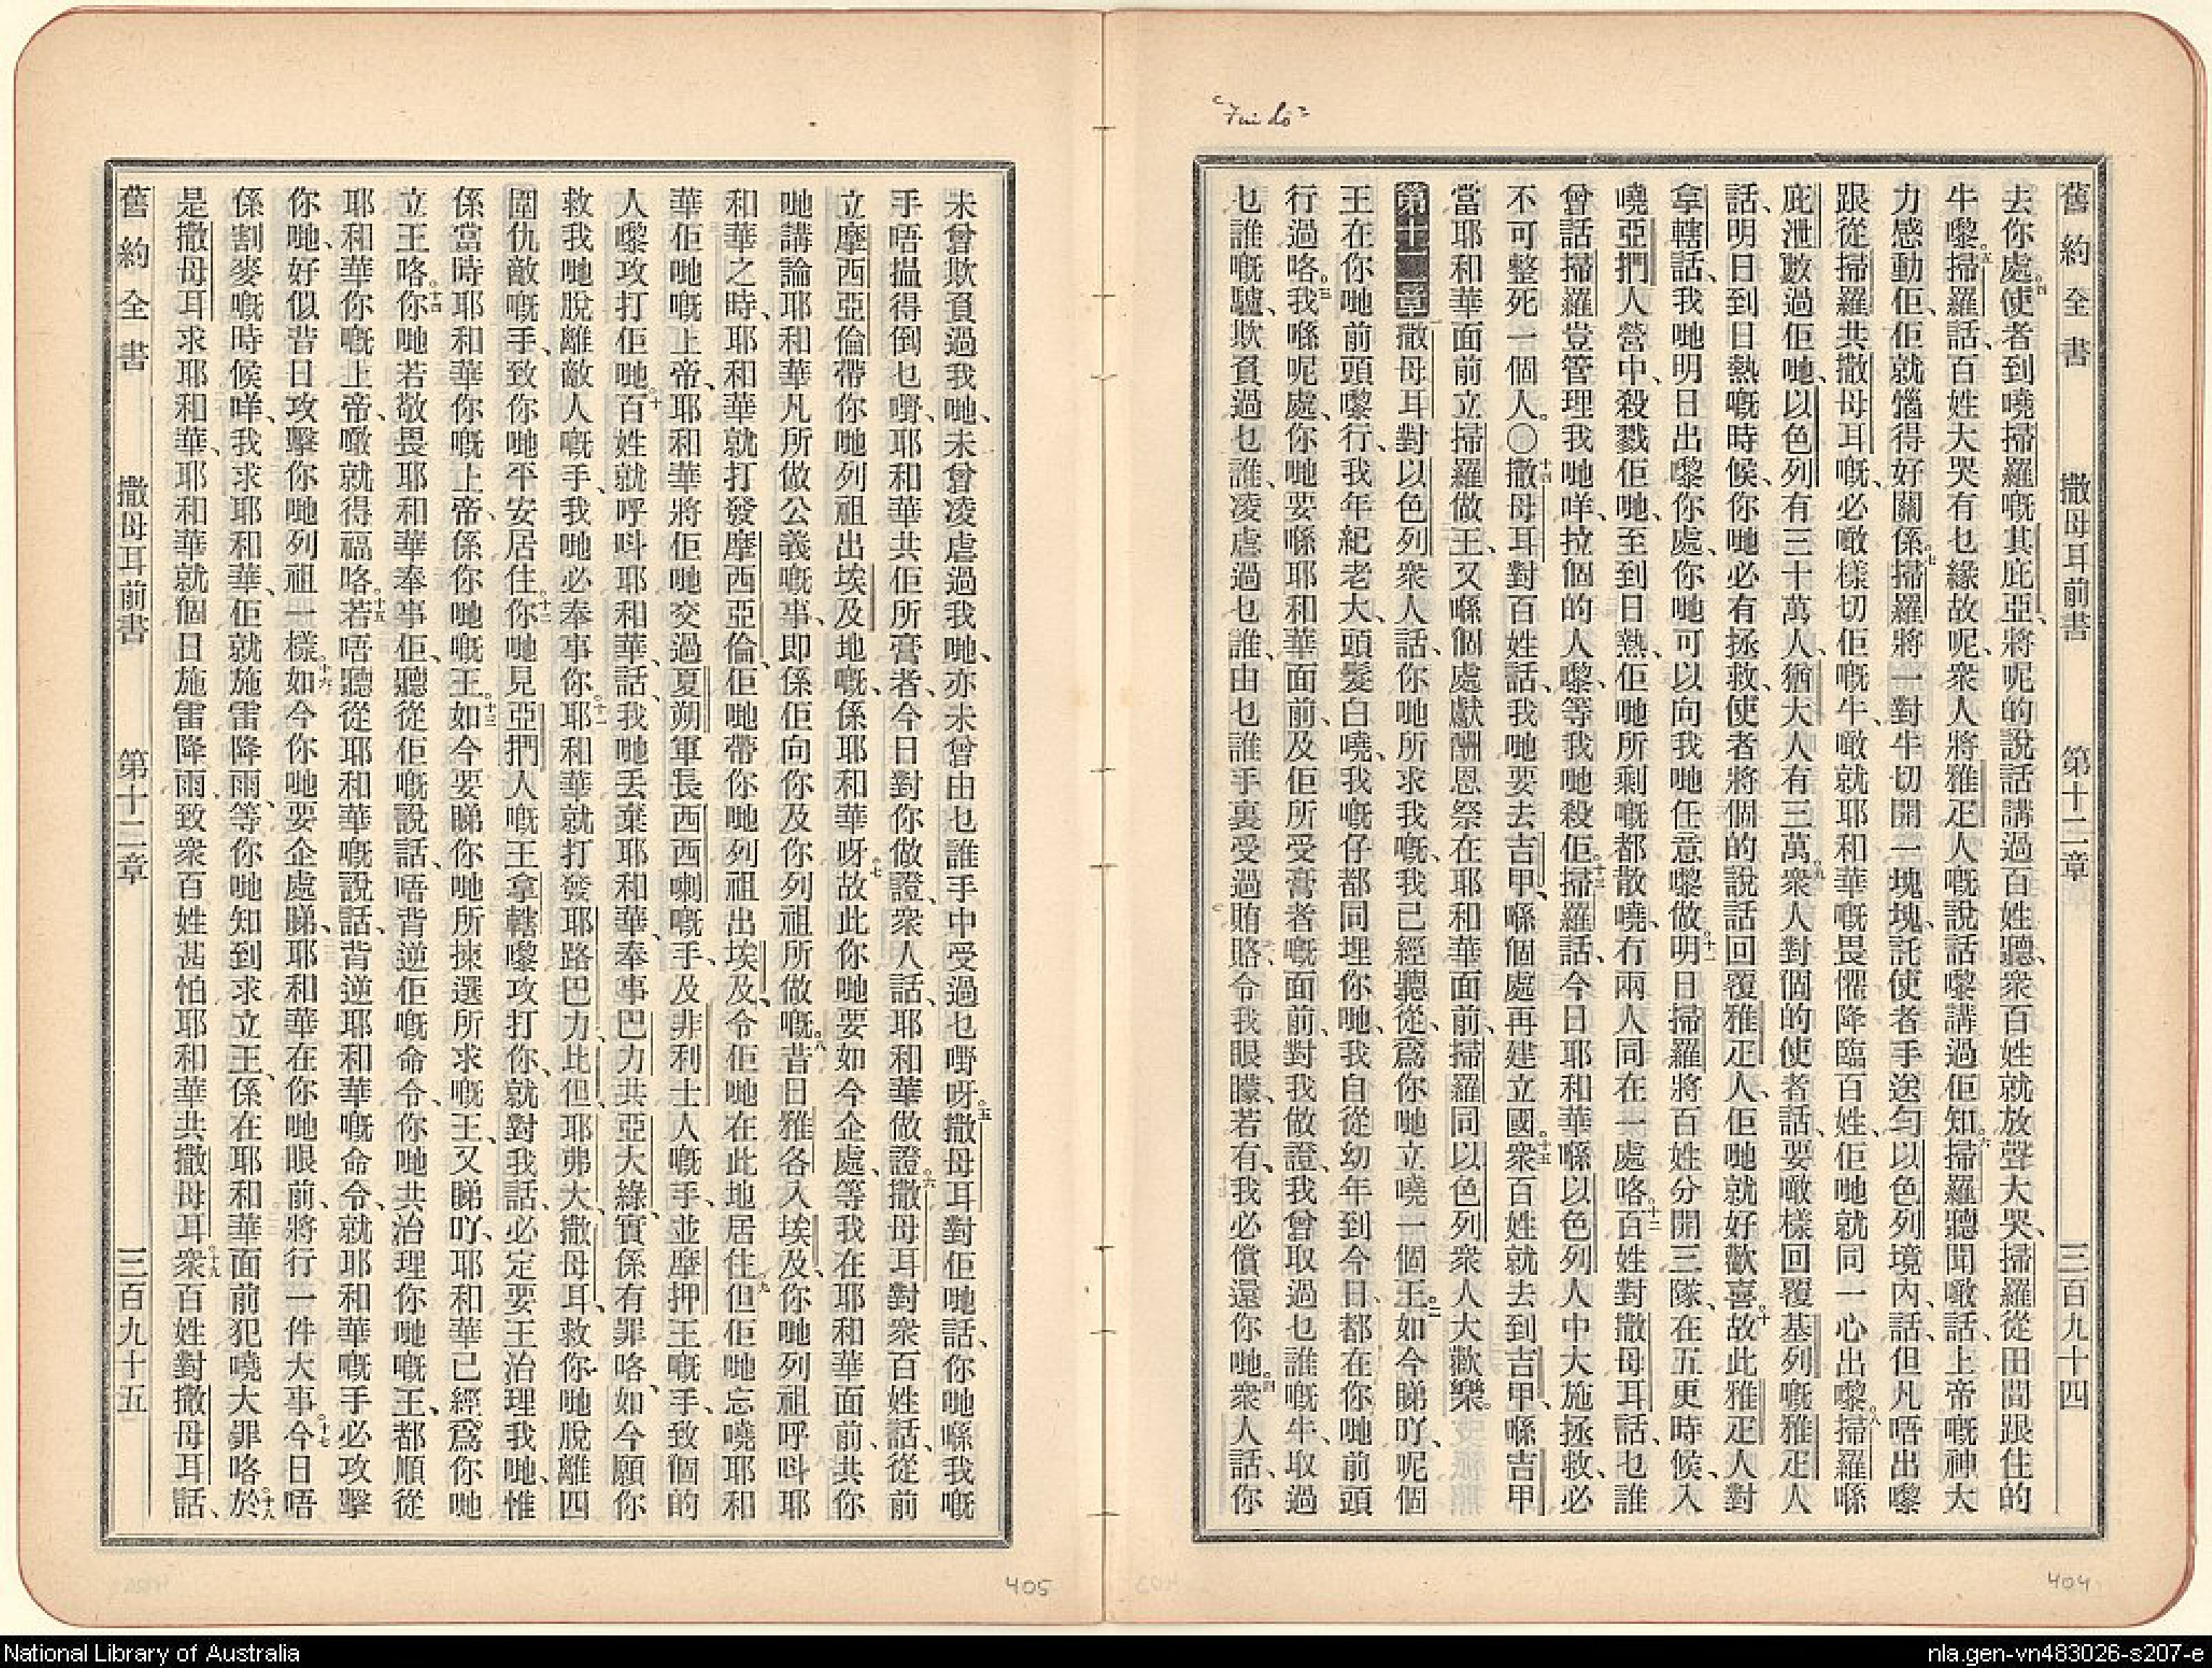 "Fui lô"
舊約全書 撒母耳前書 第十二章 三百九十四
去你處。四使者到嘵掃羅嘅其庇亞、將呢的說話講過百姓聽、衆百姓就放聲大哭、掃羅從田間跟住的
牛嚟。五掃羅話、百姓大哭有乜緣故呢、衆人將雅疋人嘅說話嚟講過佢知。六掃羅聽聞噉話、上帝嘅神大
力感動佢、佢就惱得好關係。七掃羅將一對牛切開一塊塊、託使者手送勻以色列境內、話、但凡唔出嚟
跟從掃羅共撒母耳嘅、必噉樣切佢嘅牛、噉就耶和華嘅畏懼降臨百姓、佢哋就同一心出嚟。八掃羅喺
庇泄數過佢哋、以色列有三十萬人、猶大人有三萬。九衆人對個的使者話、要噉樣回覆基列嘅雅疋人
話、明日到日熱嘅時候、你哋必有拯救、使者將個的說話回覆雅疋人、佢哋就好歡喜。十故此雅疋人對
拿轄話、我哋明日出嚟你處、你哋可以向我哋任意嚟做。十一明日掃羅將百姓分開三隊、在五更時候、入
嘵亞捫人營中、殺戮佢哋、至到日熱、佢哋所剩嘅都散嘵、有兩人同在一處咯。十二百姓對撒母耳話、乜誰
曾話掃羅豈管理我哋咩、拉個的人嚟、等我哋殺佢。十三掃羅話、今日耶和華喺以色列人中大施拯救、必
不可整死一個人。〇十四撒母耳對百姓話、我哋要去吉甲、喺個處再建立國。十五衆百姓就去到吉甲、喺吉甲
當耶和華面前立掃羅做王、又喺個處獻酬恩祭在耶和華面前、掃羅同以色列衆人大歡樂。
第十二章 撒母耳對以色列衆人話、你哋所求我嘅、我已經聽從、爲你哋立嘵一個王。二如今睇吖、呢個
王在你哋前頭嚟行、我年紀老大、頭髮白嘵、我嘅仔都同埋你哋、我自從幼年到今日、都在你哋前頭
行過咯。三我喺呢處、你哋要喺耶和華面前、及佢所受膏者嘅面前、對我做證、我曾取過乜誰嘅牛、取過
乜誰嘅驢、欺負過乜誰、凌虐過乜誰、由乜誰手裏受過賄賂令我眼矇、若有、我必償還你哋。四衆人話、你
404
未曾欺負過我哋、未曾凌虐過我哋、亦未曾由乜誰手中受過乜嘢呀。五撒母耳對佢哋話、你哋喺我嘅
手唔搵得倒乜嘢、耶和華共佢所膏者、今日對你做證、衆人話、耶和華做證。六撒母耳對衆百姓話、從前
立摩西亞倫帶你哋列祖出埃及地嘅、係耶和華呀。七故此你哋要如今企處、等我在耶和華面前、共你
哋講論耶和華凡所做公義嘅事、即係佢向你及你列祖所做嘅。八昔日雅各入埃及、你哋列祖呼呌耶
和華之時、耶和華就打發摩西亞倫、佢哋帶你哋列祖出埃及、令佢哋在此地居住。九但佢哋忘嘵耶和
華佢哋嘅上帝、耶和華將佢哋交過夏朔軍長西西喇嘅手、及非利士人嘅手、並摩押王嘅手、致個的
人嚟攻打佢哋。十百姓就呼呌耶和華、話、我哋丟棄耶和華、奉事巴力共亞大綠、實係有罪咯、如今願你
救我哋脫離敵人嘅手、我哋必奉事你。十一耶和華就打發耶路巴力、比但、耶弗大、撒母耳、救你哋脫離四
圍仇敵嘅手、致你哋平安居住。十二你哋見亞捫人嘅王拿轄嚟攻打你、就對我話、必定要王治理我哋、惟
係當時耶和華你嘅上帝、係你哋嘅王。十三如今要睇你哋所揀選所求嘅王、又睇吖、耶和華已經爲你哋
立王咯。十四你哋若敬畏耶和華奉事佢、聽從佢嘅說話、唔背逆佢嘅命令、你哋共治理你哋嘅王、都順從
耶和華你嘅上帝、噉就得福咯。十五若唔聽從耶和華嘅說話、背逆耶和華嘅命令、就耶和華嘅手必攻擊
你哋、好似昔日攻擊你哋列祖一樣。十六如今你哋要企處睇、耶和華在你哋眼前、將行一件大事。十七今日唔
係割麥嘅時候咩、我求耶和華、佢就施雷降雨、等你哋知到求立王、係在耶和華面前犯嘵大罪咯。十八於
是撒母耳求耶和華、耶和華就個日施雷降雨、致衆百姓甚怕耶和華共撒母耳。十九衆百姓對撒母耳話、
舊約全書 撒母耳前書 第十二章 三百九十五
405
National Library of Australia
nla.gen-vn483026-s207-e